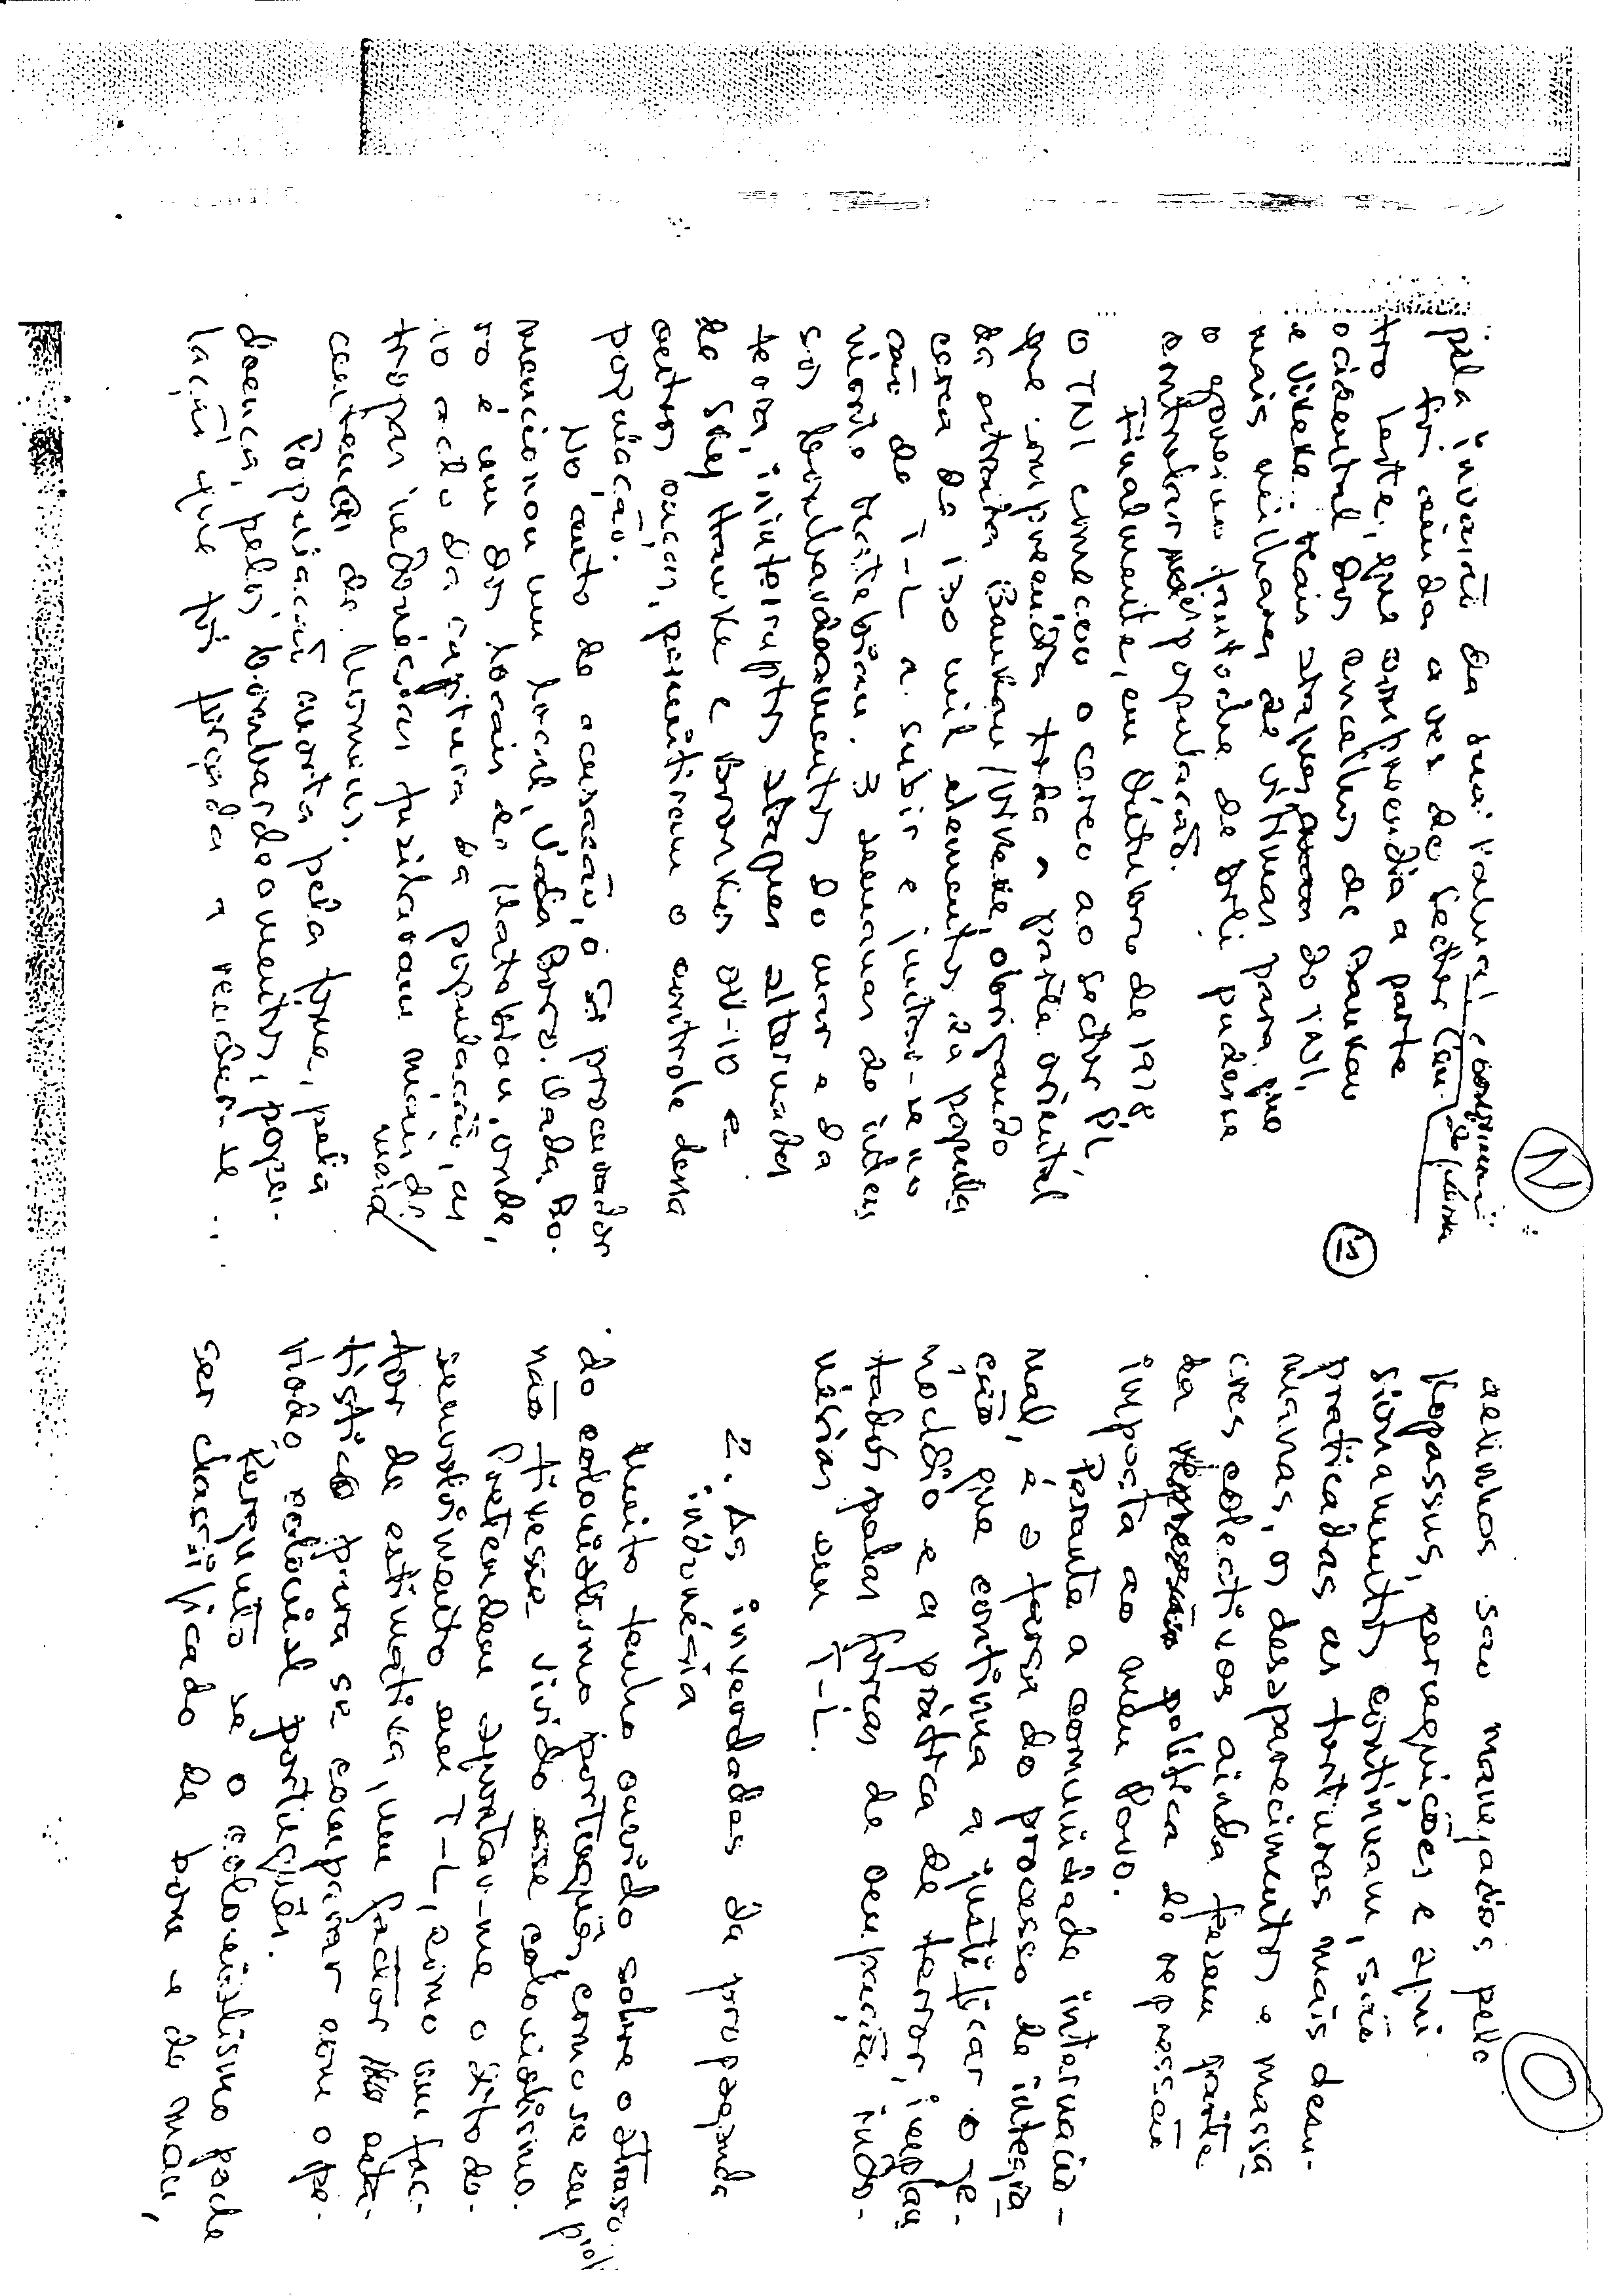 N
15
pela invasão da sua
foi ainda a vez do sector
tro leste, que compreendia a parte
ocidental dos concelhos de Baukau
e Vikeke. Mais ataques do TNI,
mais milhares de vítimas para que
o governo fantoche de Dili pudesse
controlar a população.
Finalmente, em Outubro de 1978,
o TNI começou o cerco ao sector P.L,
que compreendia toda a parte oriental
da estrada Baukau/Vikeke, obrigando
cerca de 130 mil elementos da popula
ção de T-L a subir e juntar-se no
monte Matebian. 3 semanas de inten
sos bombardeamentos do mar e da
terra, ininteruptos ataques alternados
de Sky Hawke e Bronkos OV-10 e
outros aviões, permitiram o controle dessa
população.
No auto de acusação, o Sr procurador
mencionou um local, Uada Boro. Uada Bo-
ro é um dos locais do Matebian, onde,
no acto da captura da população, as
tropas indonésias fusilavam mais de
meia
centena de homens.
População morta pela fome, pela
doença, pelos bombardeamentos, popu-
lação que foi forçada a render-se
O
delinhos são manejados pelo
Kopassus, perseguições e apri-
sionamentos continuam, são
praticadas as torturas mais desu-
manas, os desaparecimentos e massa
cres colectivos ainda fazem parte
da política de repressão
imposta ao meu Povo.
Perante a comunidade internacio-
nal, é a farsa do processo de integra
ção que continua a justificar o ge-
nocídio e a prática de terror, implan
tados pelas forças de ocupação indo-
nésias em T-L.
2. As inverdades da propaganda
indonésia
Muito tenho ouvido sobre o atraso
do colonialismo português, como se eu próprio
não tivesse vivido esse colonialismo.
Pretendem apontar-me o êxito do de-
senvolvimento em T-L, como um fac-
tor de estimativa, um factor esta-
tístico para se comparar com o pe-
ríodo colonial português.
Pergunto se o colonialismo pode
ser classificado de bom e de mau,